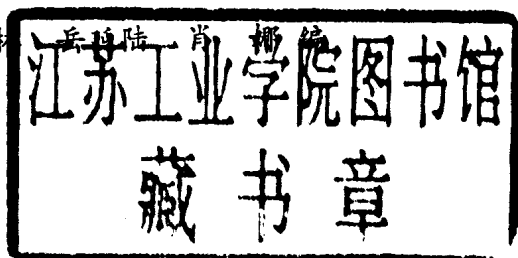 陆肖椰编
江苏工业学院图书馆
藏书章